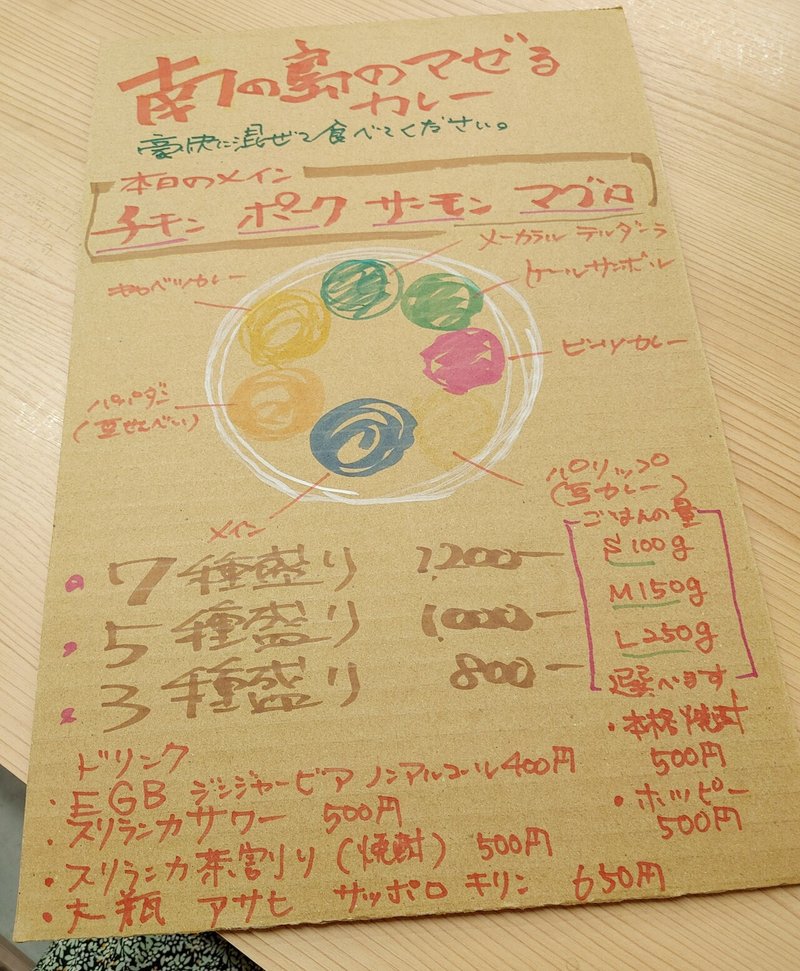 南の島のマぜる
カレー
豪快に混ぜて食べてください。
本日のメイン
チキン ポーク サーモン マグロ
メーカラル テルダーラ
キャベツカレー
ケールサンボル
ビーツカレー
パパダン
(豆せんべい)
パリップ
(豆カレー)
メイン
ごはんの量
S 100g
M 150g
L 250g
選べます
・7種盛り 1,200ー
・5種盛り 1,000ー
・3種盛り 800ー
ドリンク
・EGB ジンジャービア ノンアルコール 400円
・スリランカサワー 500円
・スリランカ茶割り(焼酎) 500円
・大瓶 アサヒ サッポロ キリン 650円
・本格焼酎
500円
・ホッピー
500円